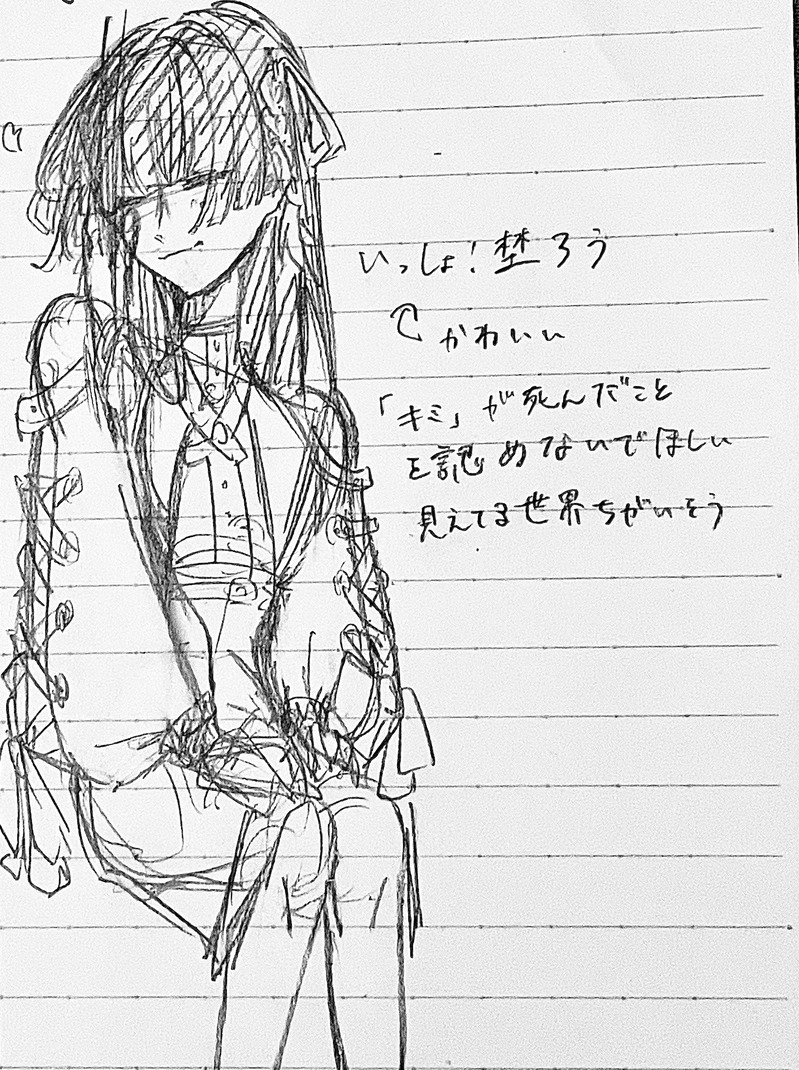 いっしょ!埜ろう
かわいい
「キミ」が死んだこと
を認めないでほしい
見えてる世界ちがいそう